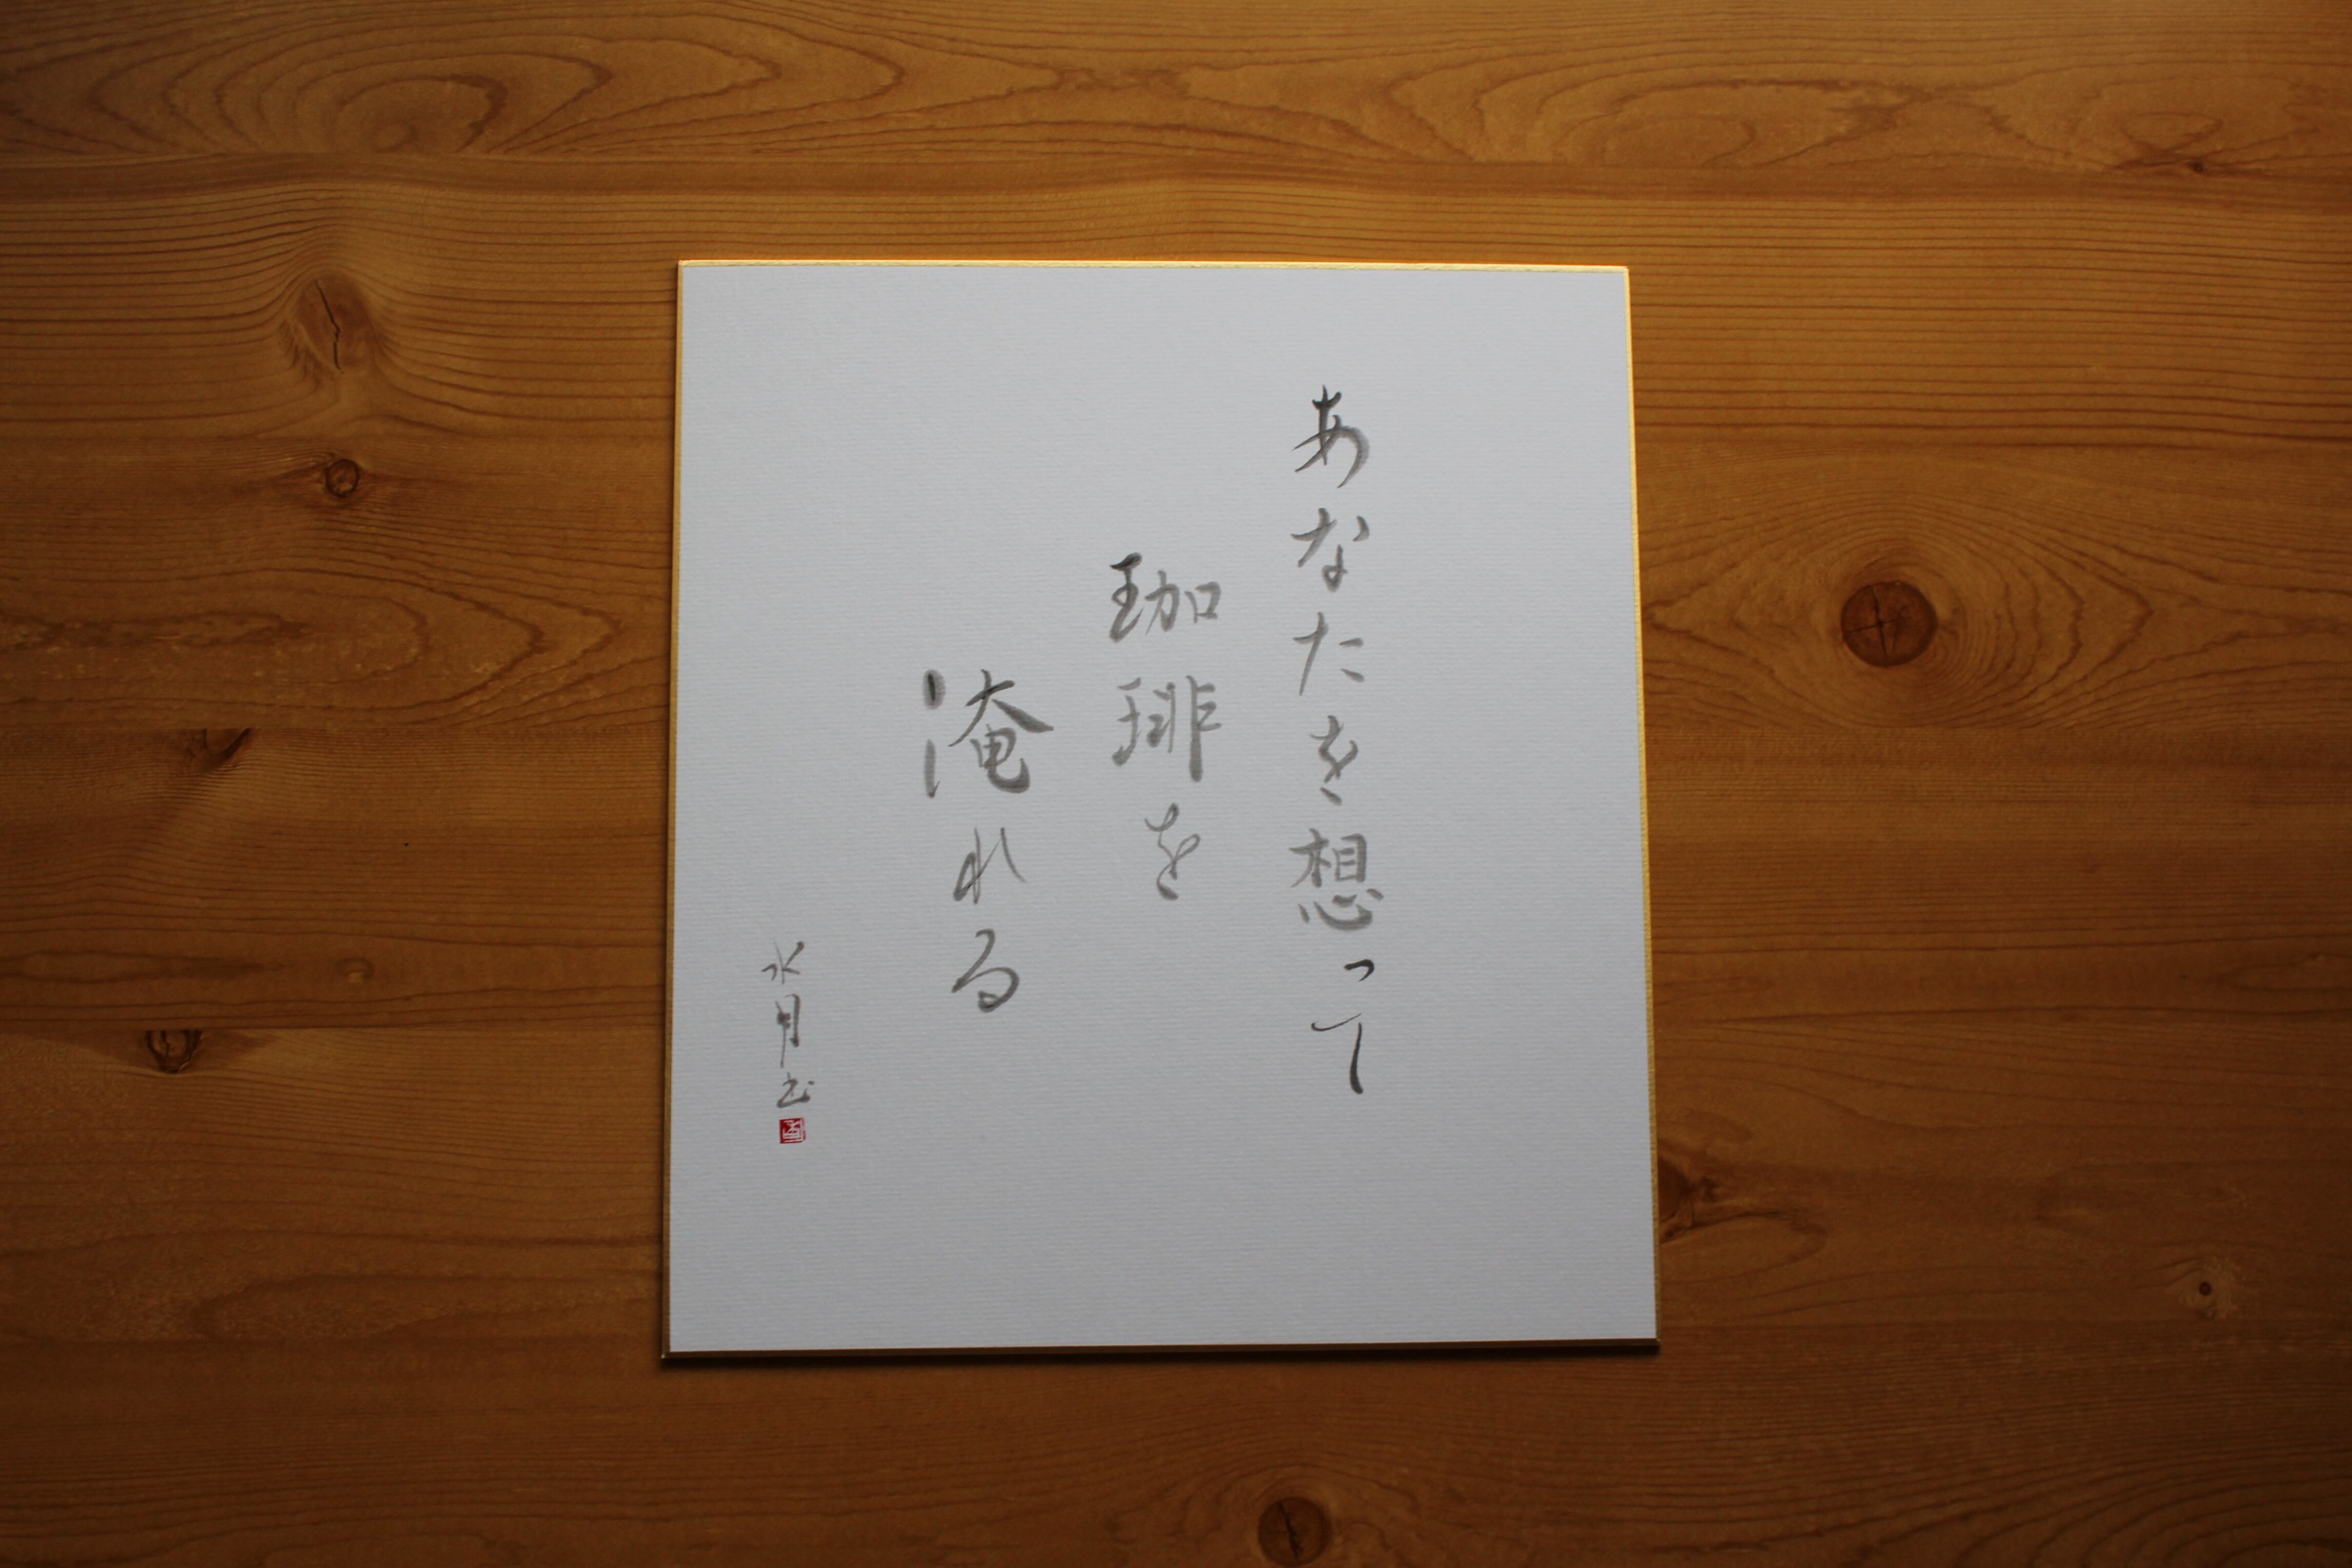 あなたを想って
珈琲を
淹れる
水月书